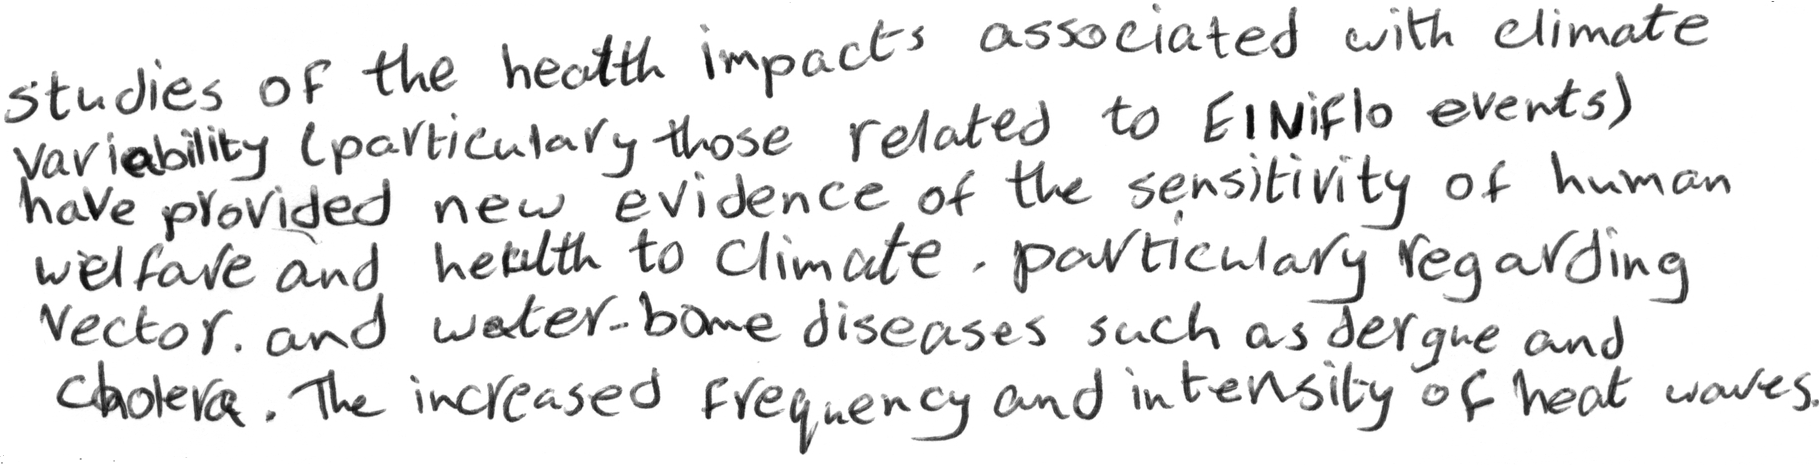 studies of the health impacts associated with climate
variability (particulary those related to EINiFlo events)
have provided new evidence of the sensitivity of human
welfare and health to climate. particulary regarding
vector. and water-bome diseases such as dergue and
cholera. The increased frequency and intensity of heat waves.